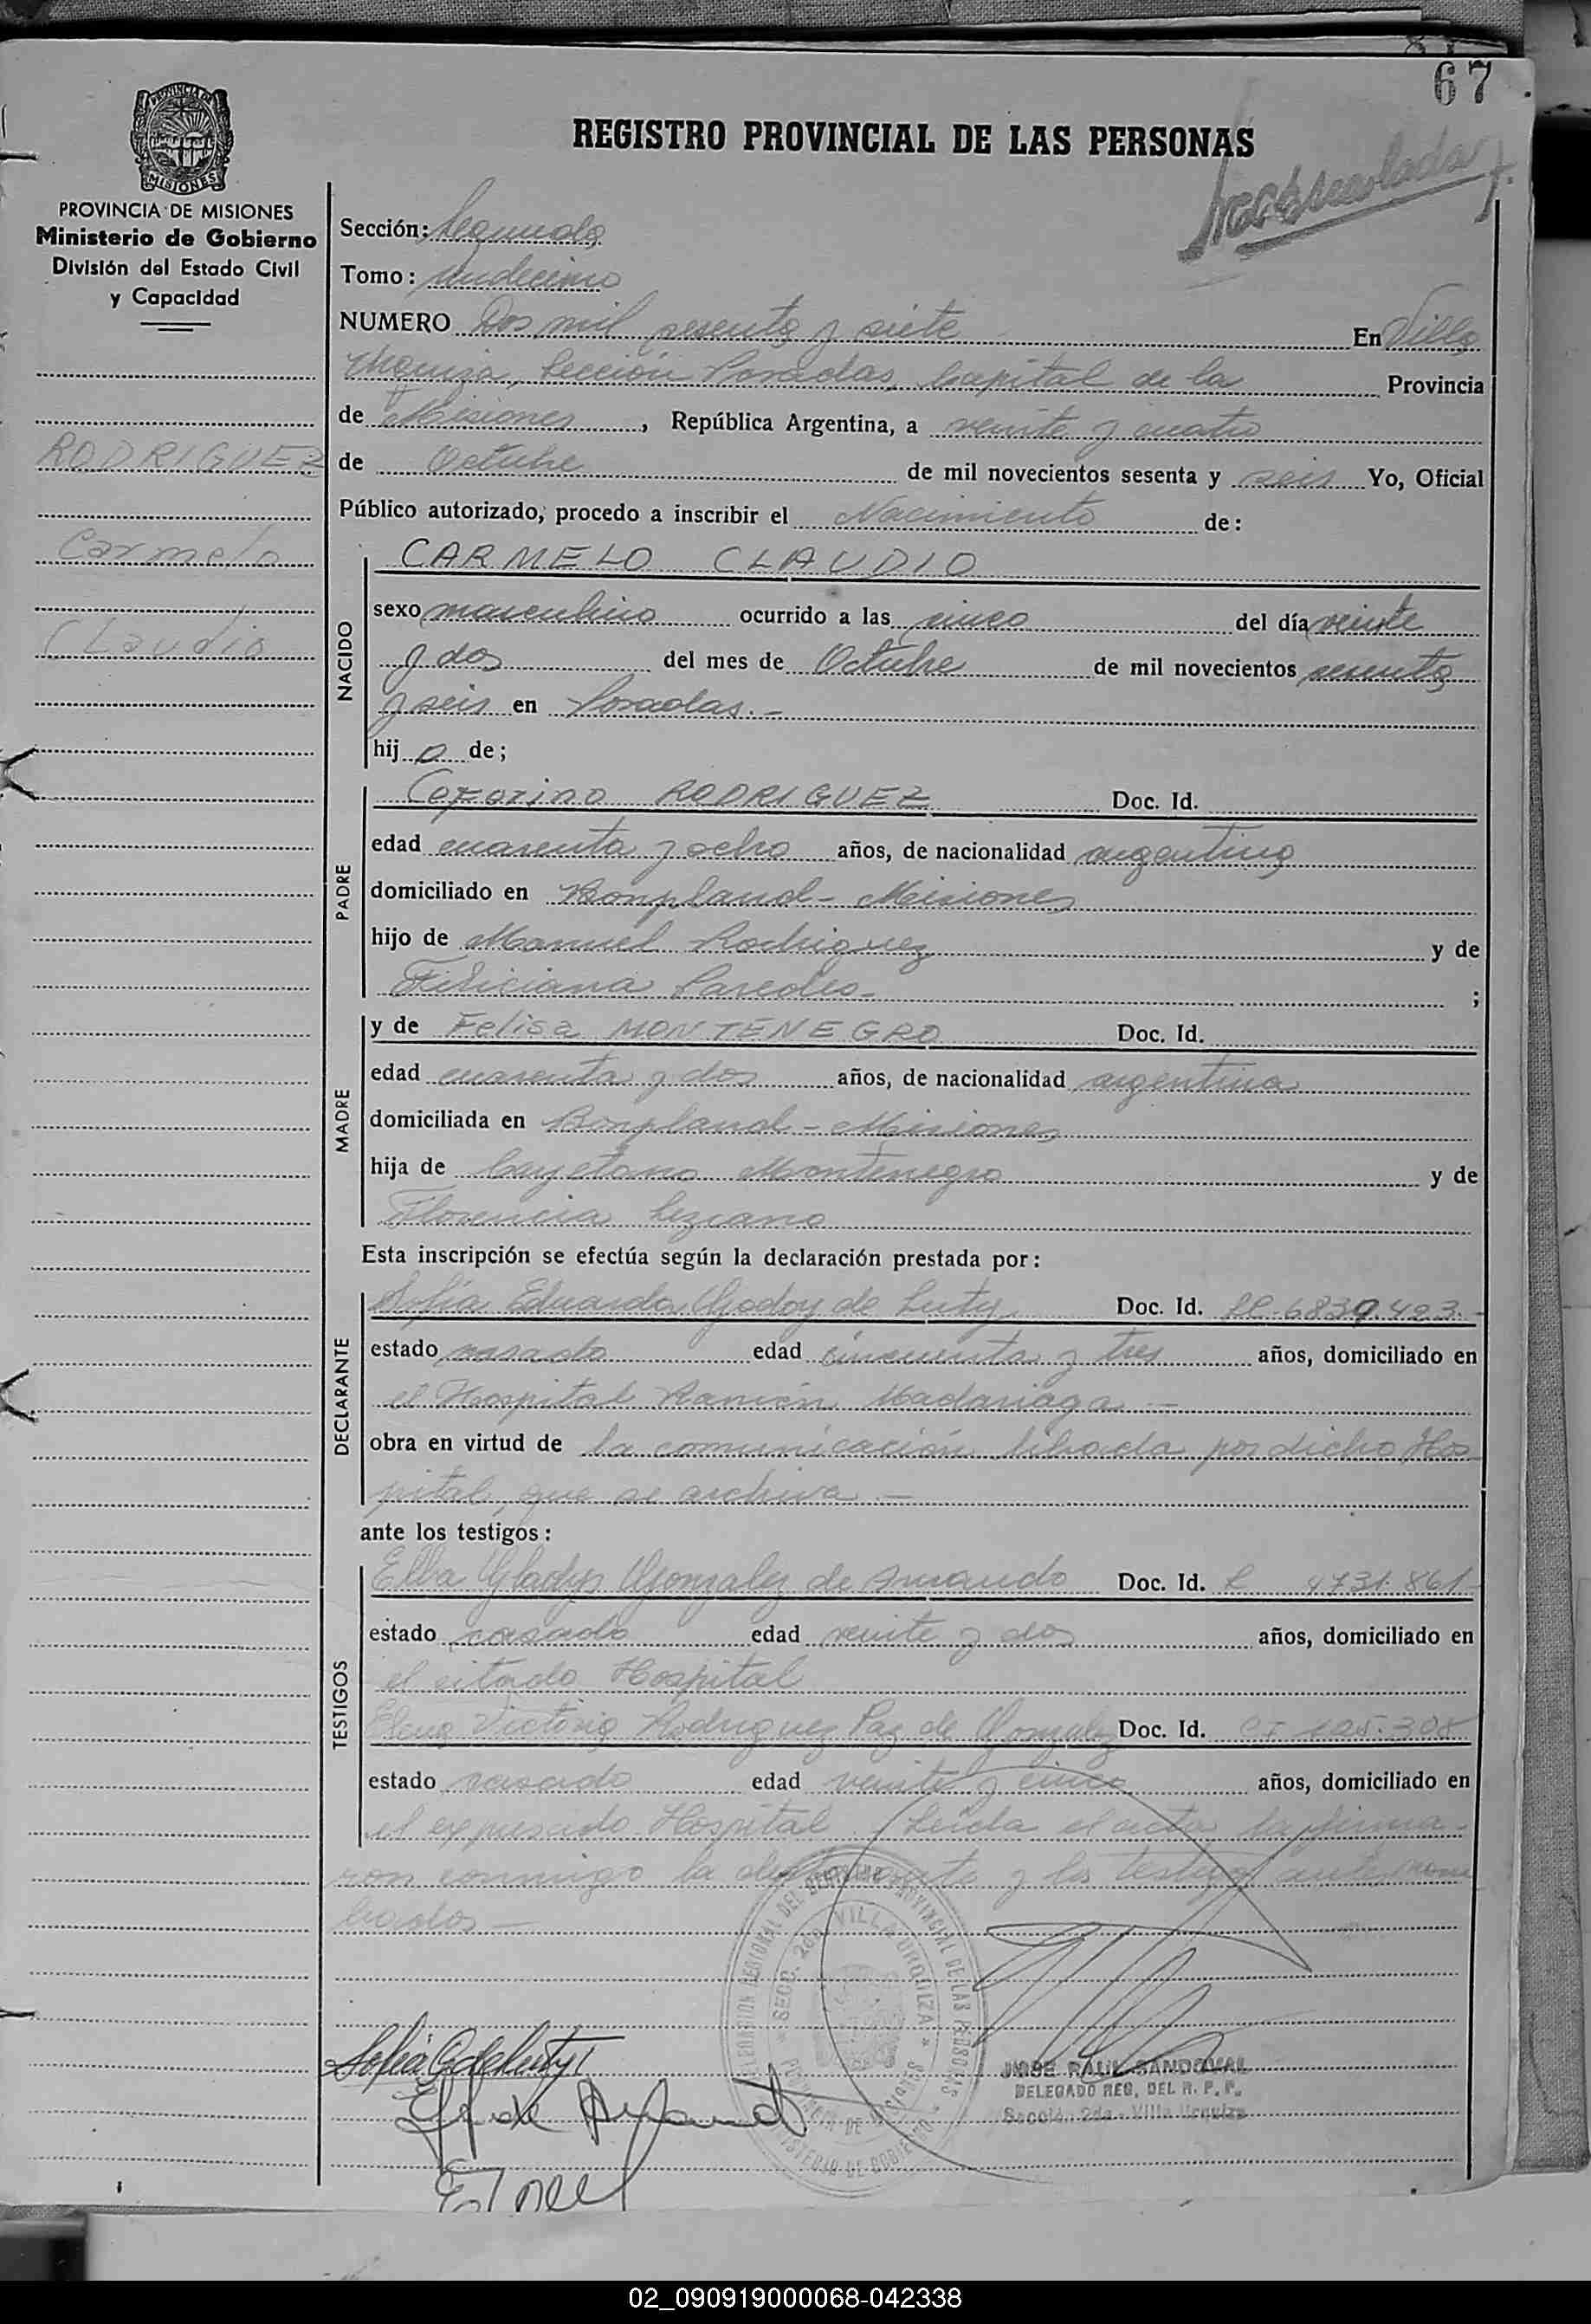 67
REGISTRO PROVINCIAL DE LAS PERSONAS
PROVINCIA DE MISIONES
MISIONES
PROVINCIA DE MISIONES
Ministerio de Gobierno
División del Estado Civil
y Capacidad
RODRIGUEZ
Carmelo
Claudio
Sección: Segunda
Tomo: undecimo
NUMERO Dos mil sesenta y siete En Villa
Urquiza, Sección Posadas, Capital de la Provincia
de Misiones, República Argentina, a veinte y cuatro
de Octubre de mil novecientos sesenta y seis Yo, Oficial
Público autorizado, procedo a inscribir el Nacimiento de:
NACIDO
CARMELO CLAUDIO
sexo masculino ocurrido a las cinco del día veinte
y dos del mes de Octubre de mil novecientos sesenta
y seis en Posadas.-
hijo de;
PADRE
Ceferino RODRIGUEZ Doc. Id.
edad cuarenta y ocho años, de nacionalidad argentino
domiciliado en Bonpland - Misiones
hijo de Manuel Rodriguez y de
Feliciana Paredes- ;
MADRE
y de Felisa MONTENEGRO Doc. Id.
edad cuarenta y dos años, de nacionalidad argentina
domiciliada en Bonpland - Misiones
hija de Cayetano Montenegro y de
Florencia Lezcano
Esta inscripción se efectúa según la declaración prestada por:
DECLARANTE
Sofía Eduarda Godoy de Doc. Id. LC-6839.423.-
estado casada edad cincuenta y tres años, domiciliado en
el Hospital Ramón Madariaga -
obra en virtud de la comunicación librada por dicho Hos
pital, que se archiva.-
ante los testigos:
TESTIGOS
Elba Gladys Gonzalez de Doc. Id. 4731.861
estado casada edad veinte y dos años, domiciliado en
el citado Hospital
Elena Victoria Rodriguez Paz de Gonzalez Doc. Id. CI 125.308
estado casada edad veinte y cinco años, domiciliado en
el expresado Hospital. Leida el acta, la firma-
ron conmigo la declarante y los testigos antenom
brados -
DELEGACION REGIONAL DEL REGISTRO PROVINCIAL DE LAS PERSONAS
SECC. 2da. VILLA URQUIZA
PROVINCIA DE MISIONES
MINISTERIO DE GOBIERNO
JORGE RAUL SANDOVAL
DELEGADO REG. DEL R. P. P.
Sección 2da - Villa Urquiza
02_090919000068-042338